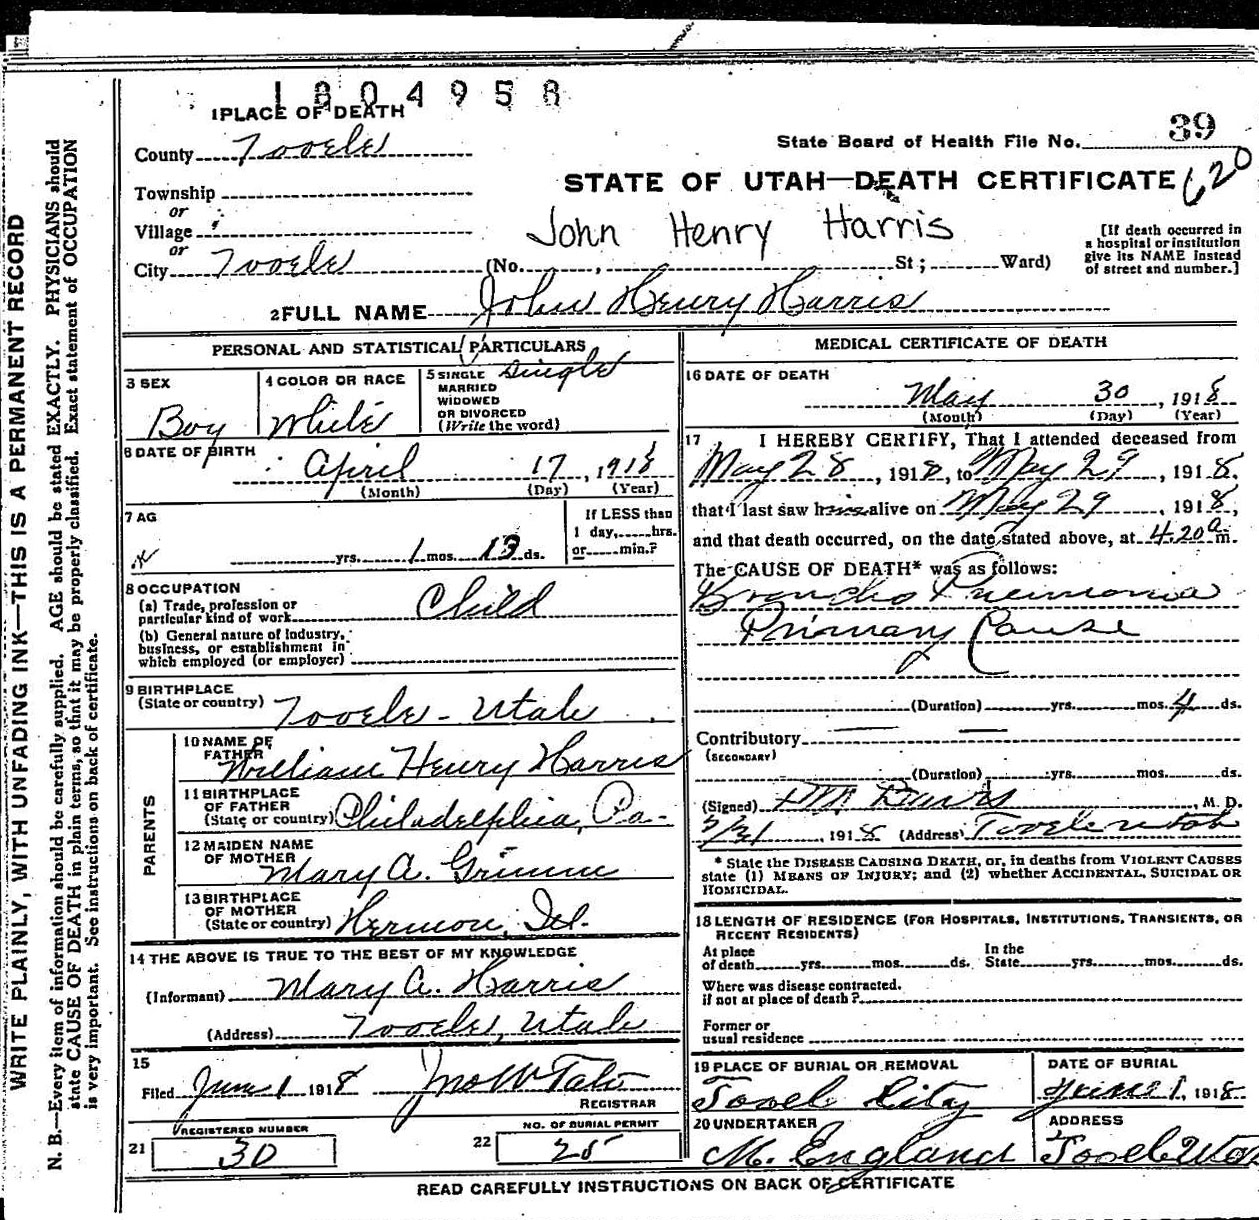 1804958
1 PLACE OF DEATH
County Tooele
State Board of Health File No. 39
Township
STATE OF UTAH—DEATH CERTIFICATE 620
or
Village
John Henry Harris
[If death occurred in
a hospital or institution
give its NAME instead
of street and number.]
or
City Tooele (No. , St ; Ward)
2 FULL NAME John Henry Harris
PERSONAL AND STATISTICAL PARTICULARS
3 SEX
Boy
4 COLOR OR RACE
White
5 SINGLE
MARRIED
WIDOWED
OR DIVORCED
(Write the word)
Single
6 DATE OF BIRTH
April 17, 1918
(Month) (Day) (Year)
7 AG
yrs. 1 mos. 13 ds.
If LESS than
1 day, hrs.
or min.?
8 OCCUPATION
(a) Trade, profession or
particular kind of work Child
(b) General nature of industry,
business, or establishment in
which employed (or employer)
9 BIRTHPLACE
(State or country) Tooele - Utah
PARENTS
10 NAME OF
FATHER
William Henry Harris
11 BIRTHPLACE
OF FATHER
(State or country) Philadelphia, Pa.
12 MAIDEN NAME
OF MOTHER
Mary A. Grimm
13 BIRTHPLACE
OF MOTHER
(State or country) Hermon, Ill.
14 THE ABOVE IS TRUE TO THE BEST OF MY KNOWLEDGE
(Informant) Mary A. Harris
(Address) Tooele, Utah
15
Filed June 1 1918 Jno W Tate
REGISTRAR
REGISTERED NUMBER
21 30
NO. OF BURIAL PERMIT
22 25
MEDICAL CERTIFICATE OF DEATH
16 DATE OF DEATH
May 30, 1918
(Month) (Day) (Year)
17 I HEREBY CERTIFY, That I attended deceased from
May 28, 1918, to May 29, 1918.
that I last saw him alive on May 29, 1918,
and that death occurred, on the date stated above, at 4.20 a m.
The CAUSE OF DEATH* was as follows:
Broncho Pneumonia
Primary Cause
(Duration) yrs. mos. 4 ds.
Contributory
(SECONDARY)
(Duration) yrs. mos. ds.
(Signed) , M. D.
5/31, 1918 (Address) Tooele Utah
* State the DISEASE CAUSING DEATH, or, in deaths from VIOLENT CAUSES
state (1) MEANS OF INJURY; and (2) whether ACCIDENTAL, SUICIDAL OR
HOMICIDAL.
18 LENGTH OF RESIDENCE (FOR HOSPITALS, INSTITUTIONS, TRANSIENTS, OR
RECENT RESIDENTS)
At place
of death yrs. mos. ds.
In the
State yrs. mos. ds.
Where was disease contracted.
if not at place of death?
Former or
usual residence
19 PLACE OF BURIAL OR REMOVAL
Tooele City
DATE OF BURIAL
June 1, 1918
20 UNDERTAKER
M. England
ADDRESS
Tooele Utah
READ CAREFULLY INSTRUCTIONS ON BACK OF CERTIFICATE
WRITE PLAINLY, WITH UNFADING INK—THIS IS A PERMANENT RECORD
N. B.—Every item of information should be carefully supplied. AGE should be stated EXACTLY. PHYSICIANS should
state CAUSE OF DEATH in plain terms, so that it may be properly classified. Exact statement of OCCUPATION
is very important. See instructions on back of certificate.